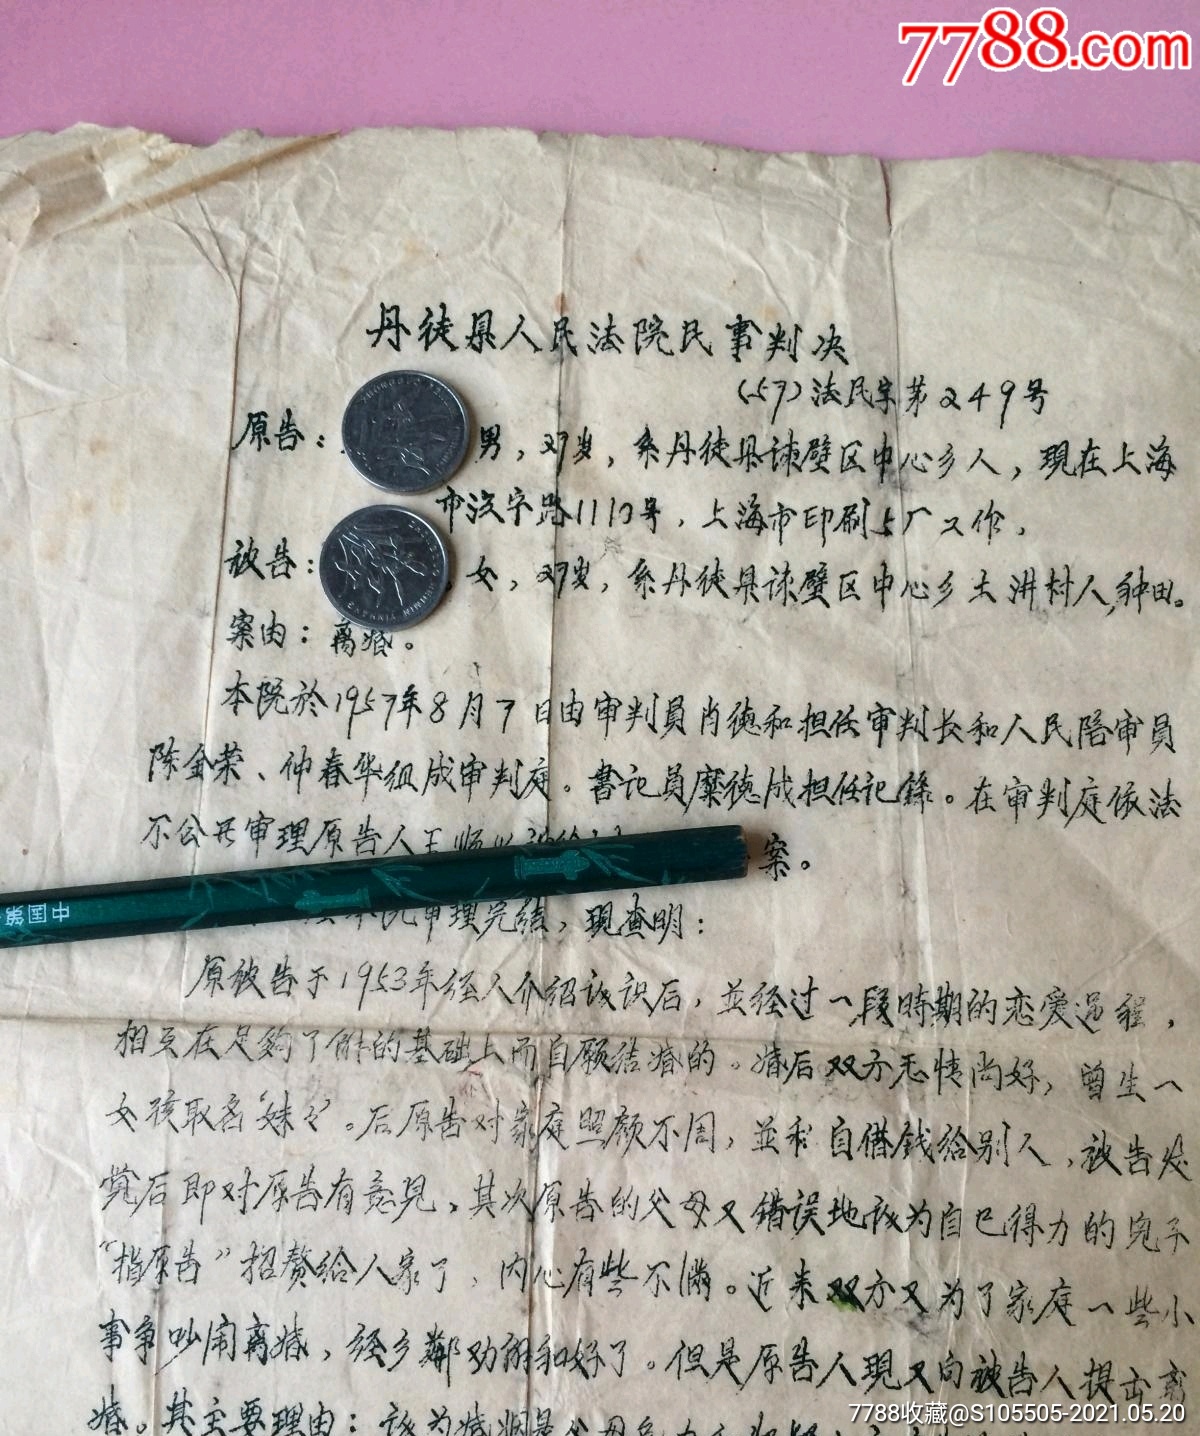 7788.com
丹徒县人民法院民事判决
(57)法民字第249号
原告: 男,27岁,系丹徒县谏壁区中心乡人,現在上海
市汶宁路1110号,上海市印刷 厂工作,
被告: 女,27岁,系丹徒县谏壁区中心乡土洪村人,种田。
案由:离婚。
本院於1957年8月7日由审判員肖德和担任审判长和人民陪审員
陈金荣、仲春华组成审判庭。書记員糜德成担任记錄。在审判庭依法
不公开审理原告人王 案。
本院审理完结,现查明:
原被告于1953年经人介绍认识后,並经过一段時期的恋爱过程,
相互在足夠了解的基础上而自願结婚的。婚后双方无情尚好,曾生一
女孩取名"妹々"。后原告对家庭照顾不周,並私自借錢给别人,被告发
觉后即对原告有意見。其次原告的父母又错误地认为自己得力的兒子
"指原告"招赘给人家了,内心有些不滿。近来双方又为了家庭一些小
事争吵闹离婚,经乡鄰劝解和好了。但是原告人現又向被告人提出离
婚。其主要理由:认为婚姻是父母
中国第一
7788收藏@S105505-2021.05.20